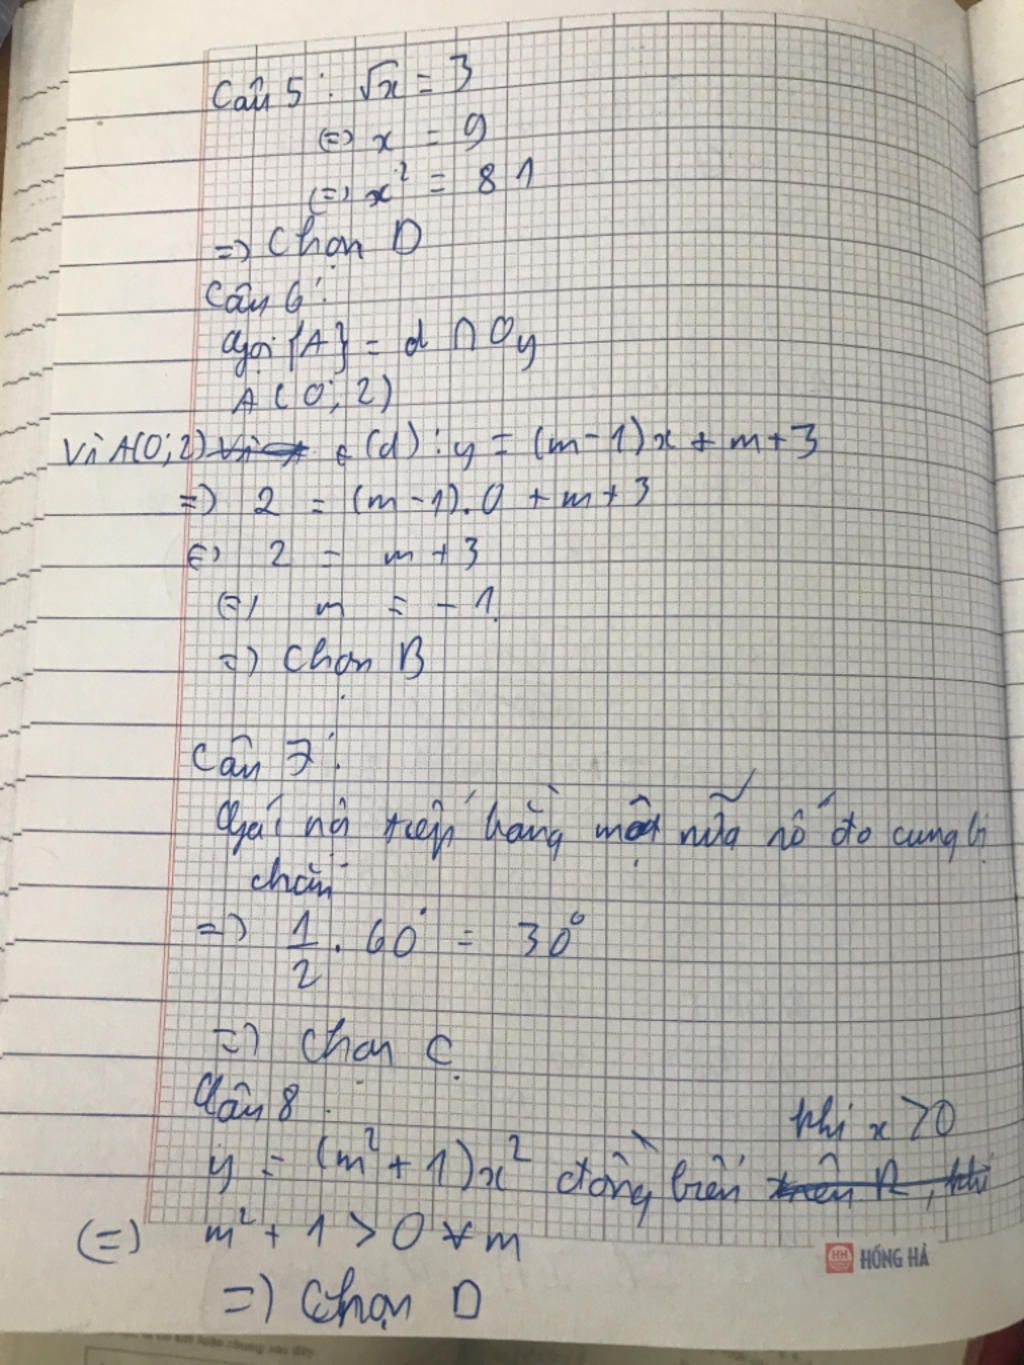 Câu 5 : √x = 3
(=) x = 9
(=) x² = 81
=) Chọn D
Câu 6 :
Gọi {A} = d ∩ Oy
A (0; 2)
Vì A(0; 2) ∈ (d) : y = (m-1)x + m+3
=) 2 = (m-1).0 + m+3
(=) 2 = m+3
(=) m = -1
=) Chọn B
Câu 7 :
Góc nội tiếp bằng một nửa số đo cung bị
chắn
=) 1/2 . 60° = 30°
=) Chọn C
Câu 8 :
khi x > 0
y = (m² + 1)x² đồng biến trên R, khi
(=) m² + 1 > 0 ∀ m
=) Chọn D
HH HỒNG HÀ